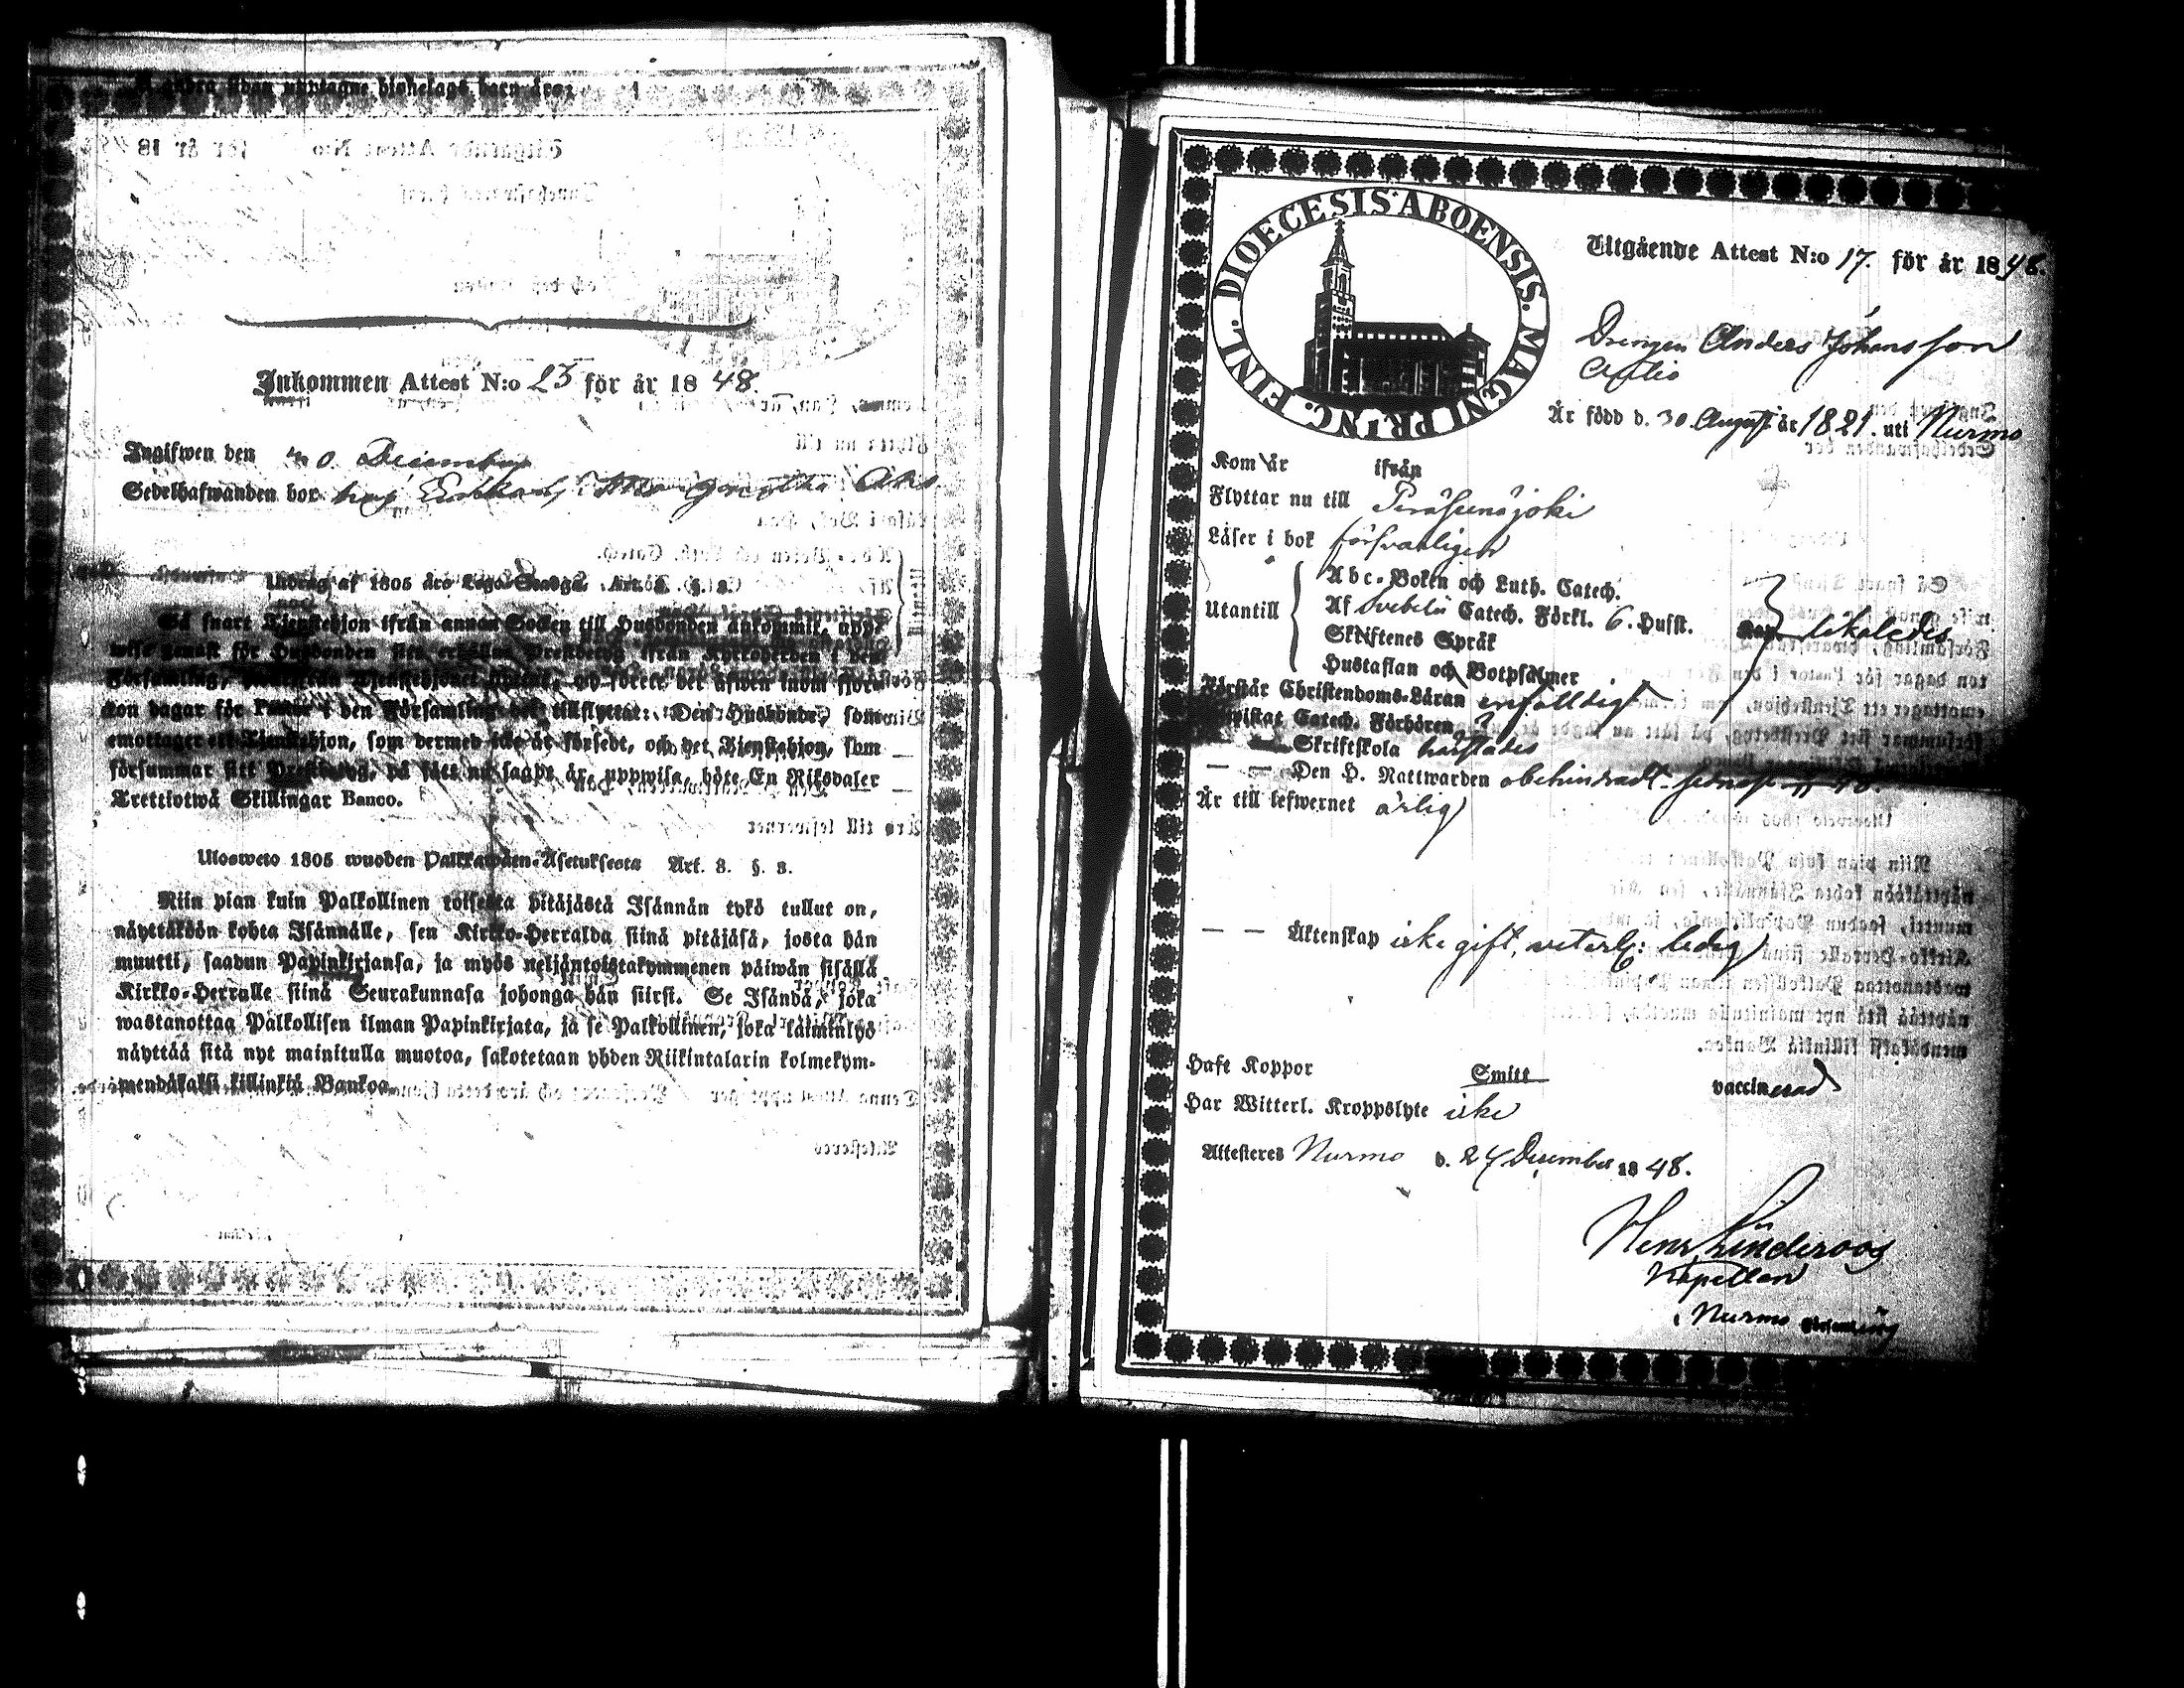 andra sidan upptagne hionelags barn äro:
Inkommen Attest N:o 23 för år 18 48.
Ingifwen den 30 December
Sedelhafwanden bor hos
Utdrag af 1805 års Lego-Stadga. Art. 3. §. 3.
Så snart Tjenstehjon ifrån annan Socken till Husbonden ankommit, upp-
wise genast för Husbonden sitt erhållne Prestbetyg ifrån Kyrkoherden i den
Församling, Tjenstehjonet och förete det äfwen inom fjor-
ton dagar för Pastor i den Församling det tillflyttat: Den Husbonde, som
emottager ett Tjenstehjon, som dermed icke är försedt, och det Tjenstehjon, som
försummar sitt Prestbetyg, på sätt nu sagdt är, uppwisa, böte En Riksdaler
Trettiotwå Skillingar Banco.
Ulosweto 1805 wuoden Palkkawäen-Asetuksesta Art. 3. §. 3.
Niin pian kuin Palkollinen toisesta pitäjästä Isännän tykö tullut on,
näyttäköön kohta Isännälle, sen Kirkko-Herralda siinä pitäjäsä, josta hän
muutti, saadun Papinkirjansa, ja myös neljäntoistakymmenen päiwän sisällä
Kirkko-Herralle siinä Seurakunnasa johonga hän siirsi. Se Isändä, joka
wastanottaa Palkollisen ilman Papinkirjata, ja se Palkollinen, joka laiminlyö
näyttää sitä nyt mainitulla muotoa, sakotetaan yhden Riikintalarin kolmekym-
mendäkaksi killinkiä Bankoa.
DIOECESIS ABOENSIS. MAGNI PRINC. FINL.
Utgående Attest N:o 17. för år 1848.
Drengen Anders Johansson
Antio
Är född d. 30 Augusti år 1821. uti Nurmo
Kom år ifrån
Flyttar nu till Peräseinäjoki
Läser i bok försvarligen
Utantill
Abc-Boken och Luth. Catech.
Af Svebelii Catech. Förkl. 6. Hufst.
Skriftenes Språk
Hustaflan och Botpsalmer
likaledes
Förstår Christendoms-Läran enfalldigt
Bewistat Catech. Förhören
— — Skriftskola härstädes
— — Den H. Nattwarden obehindradt senast 48.
Är till lefwernet ärlig
— — Äktenskap icke gift, veterl: ledig
Haft Koppor Smitt vaccinerad
Har Witterl. Kroppslyte icke
Attesteres Nurmo d. 27 December 1848.
Henr. Linderoos
Kapellan
i Nurmo Församling